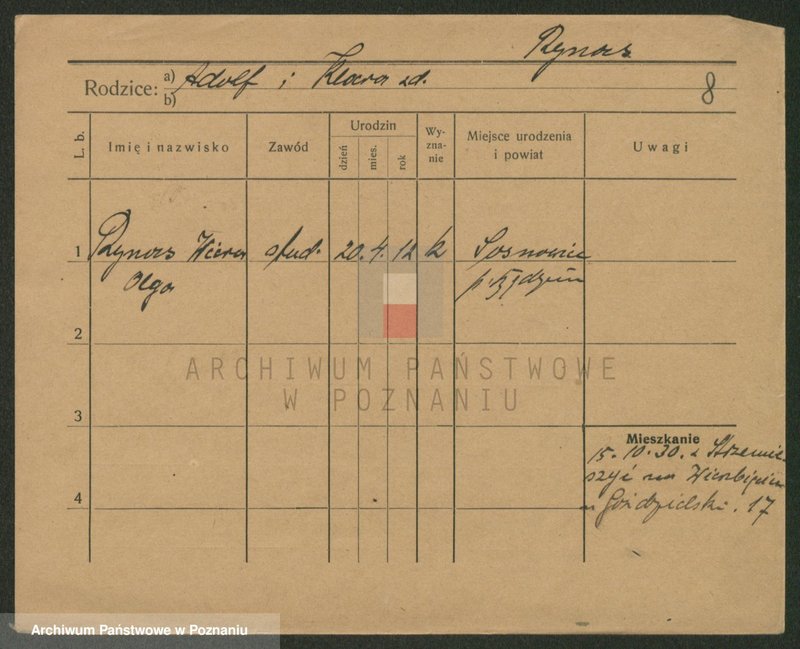 Rynars
Rodzice: a) b) Adolf i Klara zd.
8
L. b.
Imię i nazwisko
Zawód
Urodzin
dzień
mies.
rok
Wy-
zna-
nie
Miejsce urodzenia
i powiat
Uwagi
1 Rynars Wiera stud. 20. 4. 12 k Sosnowiec
Olga
2
ARCHIWUM PAŃSTWOWE
W POZNANIU
3
Mieszkanie
15. 10. 30. z Strzemie-
szyc na Wierzbięcice
17
4
Archiwum Państwowe w Poznaniu